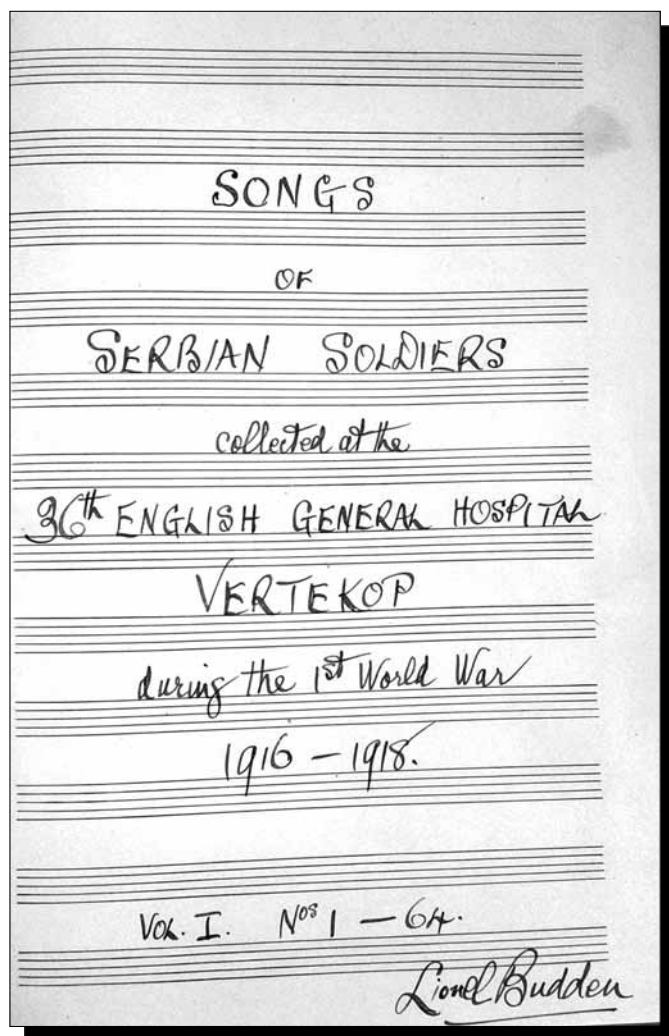 SONGS
OF
SERBIAN SOLDIERS
collected at the
36th ENGLISH GENERAL HOSPITAL
VERTEKOP
during the 1st World War
1916 – 1918.
VOL. I. Nos 1 – 64.
Lionel Budden